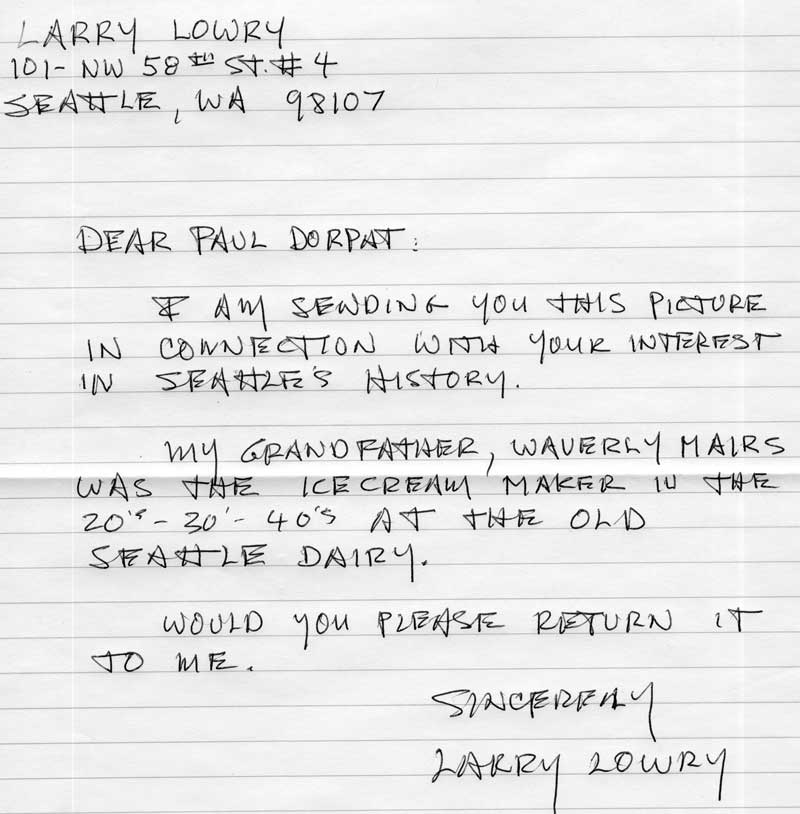 LARRY LOWRY
101- NW 58th ST. # 4
SEATTLE, WA 98107
DEAR PAUL DORPAT:
I AM SENDING YOU THIS PICTURE
IN CONNECTION WITH YOUR INTEREST
IN SEATTLE'S HISTORY.
MY GRANDFATHER, WAVERLY MAIRS
WAS THE ICE CREAM MAKER IN THE
20's - 30' - 40's AT THE OLD
SEATTLE DAIRY.
WOULD YOU PLEASE RETURN IT
TO ME.
SINCERELY
LARRY LOWRY